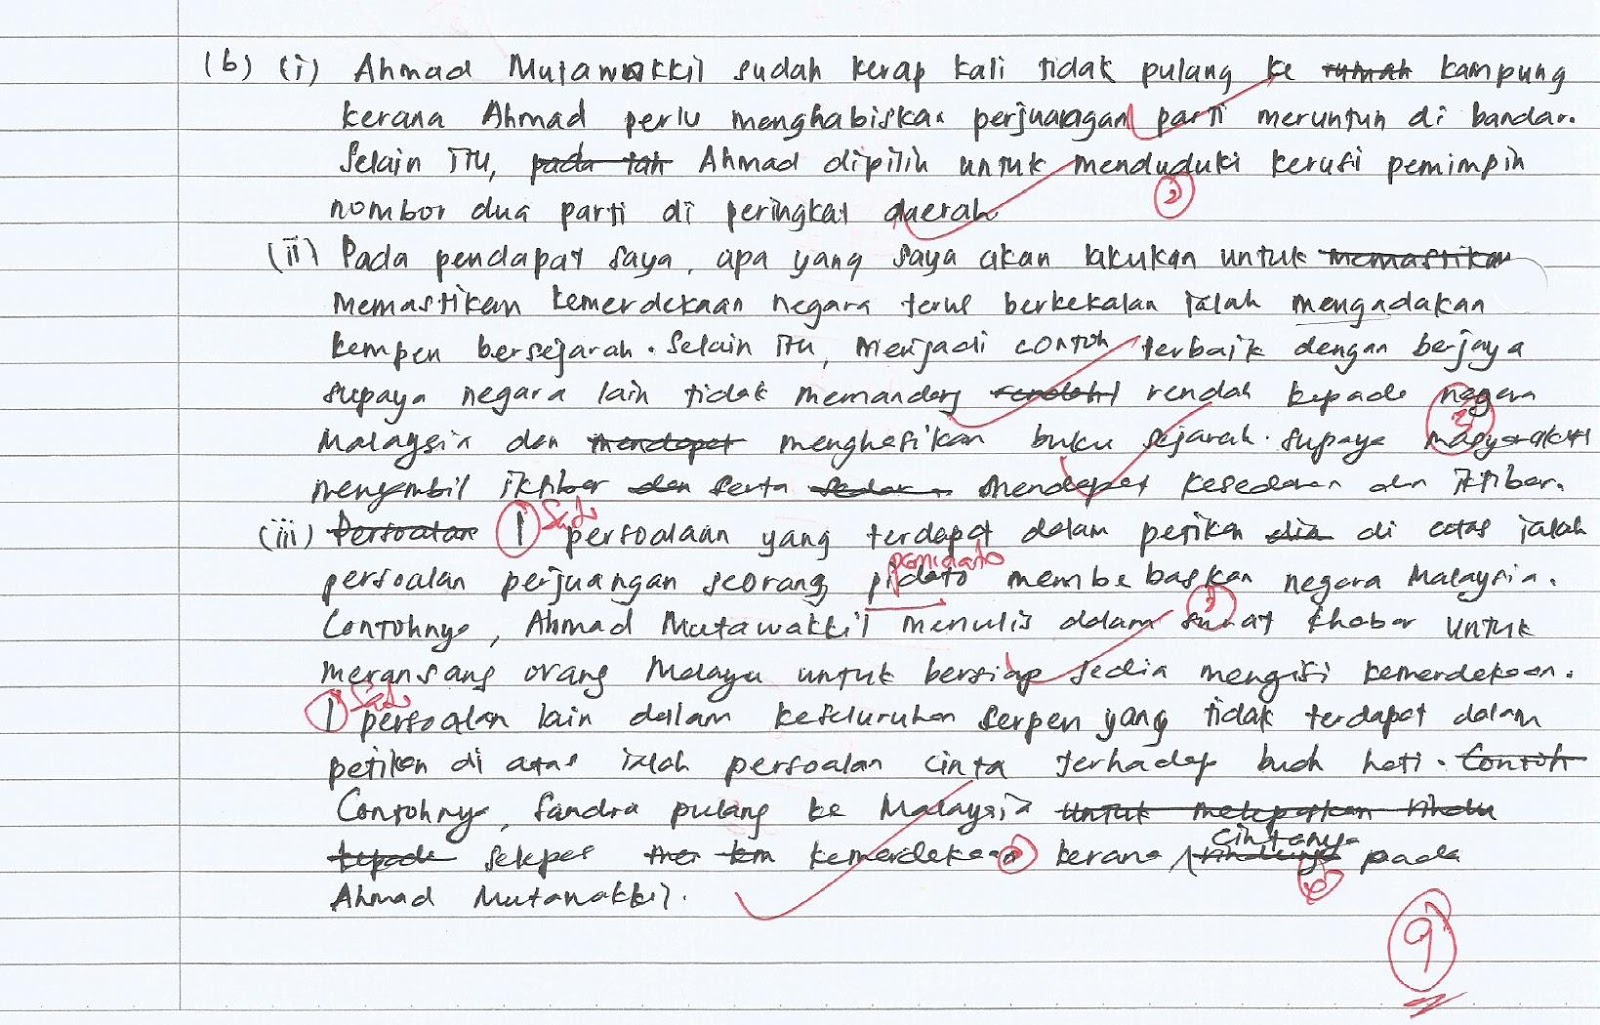 (b) (i) Ahmad Mutawakkil sudah kerap kali tidak pulang ke rumah kampung
kerana Ahmad perlu menghabiskan perjuangan parti meruntun di bandar.
Selain itu, pada tah Ahmad dipilih untuk menduduki kerusi pemimpin
2
nombor dua parti di peringkat daerah
(ii) Pada pendapat saya, apa yang saya akan lakukan untuk memastikan
memastikan kemerdekaan negara terus berkekalan ialah mengadakan
kempen bersejarah. Selain itu, menjadi contoh terbaik dengan berjaya
supaya negara lain tidak memandang rendah kepada negara
3
Malaysia dan mendapat menghasilkan buku sejarah. supaya masyarakat
mengambil iktibar dan serta mendapat kesedaran dan iktibar.
(iii) Persoalan 1 Satu persoalaan yang terdapat dalam petikan dia di atas ialah
pemidato
persoalan perjuangan seorang pidato membebaskan negara Malaysia.
Contohnya, Ahmad Mutawakkil menulis dalam surat khabar untuk
meransang orang Melayu untuk bersiap sedia mengisi kemerdekaan.
1 Satu persoalan lain dalam keseluruhan serpen yang tidak terdapat dalam
petikan di atas ialah persoalan cinta terhadap buah hati. Contoh
Contohnya, Sandra pulang ke Malaysia untuk melepaskan rindu
cintanya
kepada selepas kemerdekaan kerana rindunya pada
Ahmad Mutawakkil.
9